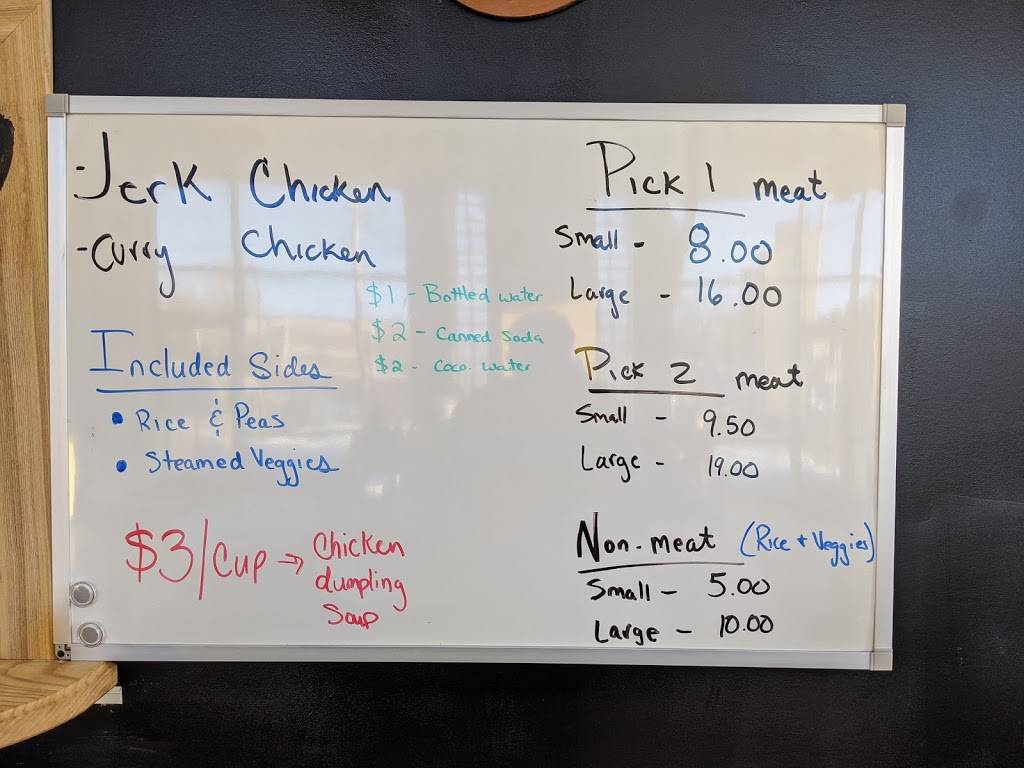 -Jerk Chicken
-Curry Chicken
$1 - Bottled water
$2 - Canned Soda
$2 - Coco. water
Included Sides
• Rice & Peas
• Steamed Veggies
$3/Cup → Chicken
dumpling
Soup
Pick 1 meat
Small - 8.00
Large - 16.00
Pick 2 meat
Small - 9.50
Large - 19.00
Non-meat (Rice + Veggies)
Small - 5.00
Large - 10.00